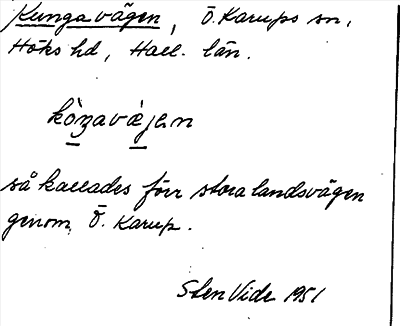 Kungavägen, Ö. Karups sn,
Höks hd, Hall. län.
så kallades förr stora landsvägen
genom Ö. Karup.
Sten Vide 1951